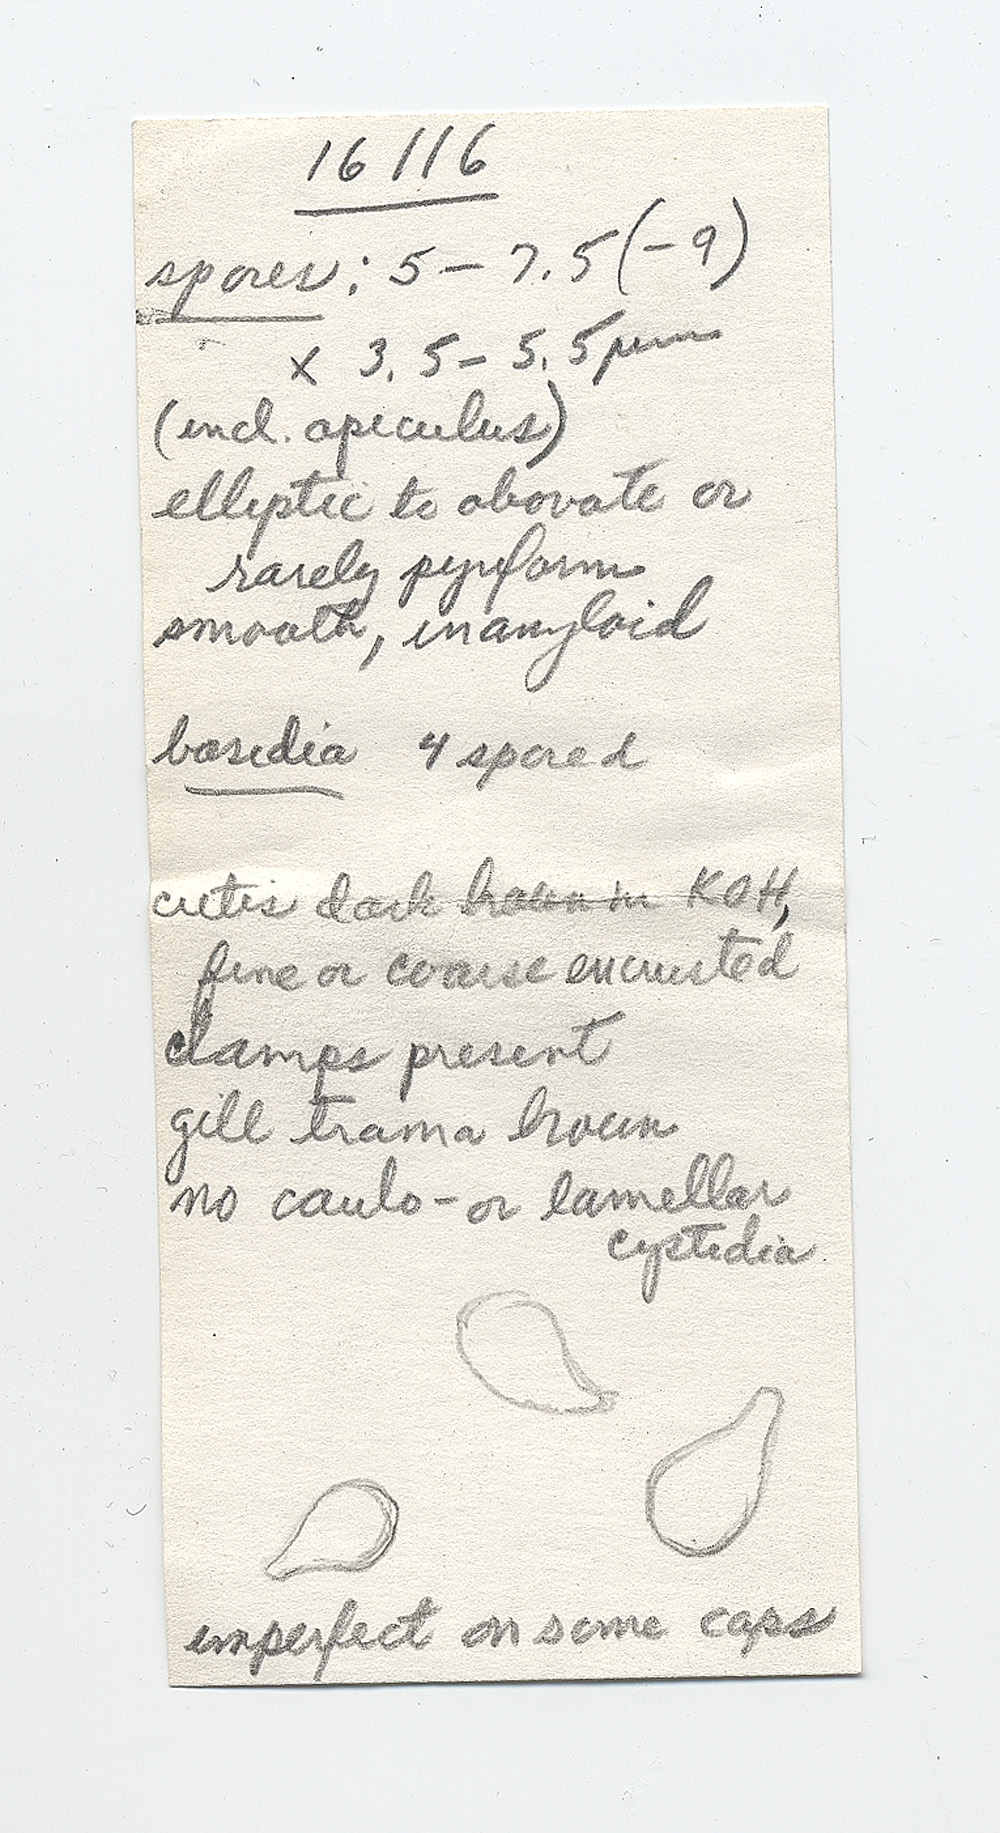 16116
spores: 5-7.5(-9)
x 3.5-5.5 µm
(incl. apiculus)
elliptic to obovate or
rarely pyriform
smooth, inamyloid
basidia 4 spored
cutis dark brown in KOH,
fine or coarse encrusted
clamps present
gill trama brown
no caulo- or lamellar
cystidia
imperfect on some caps